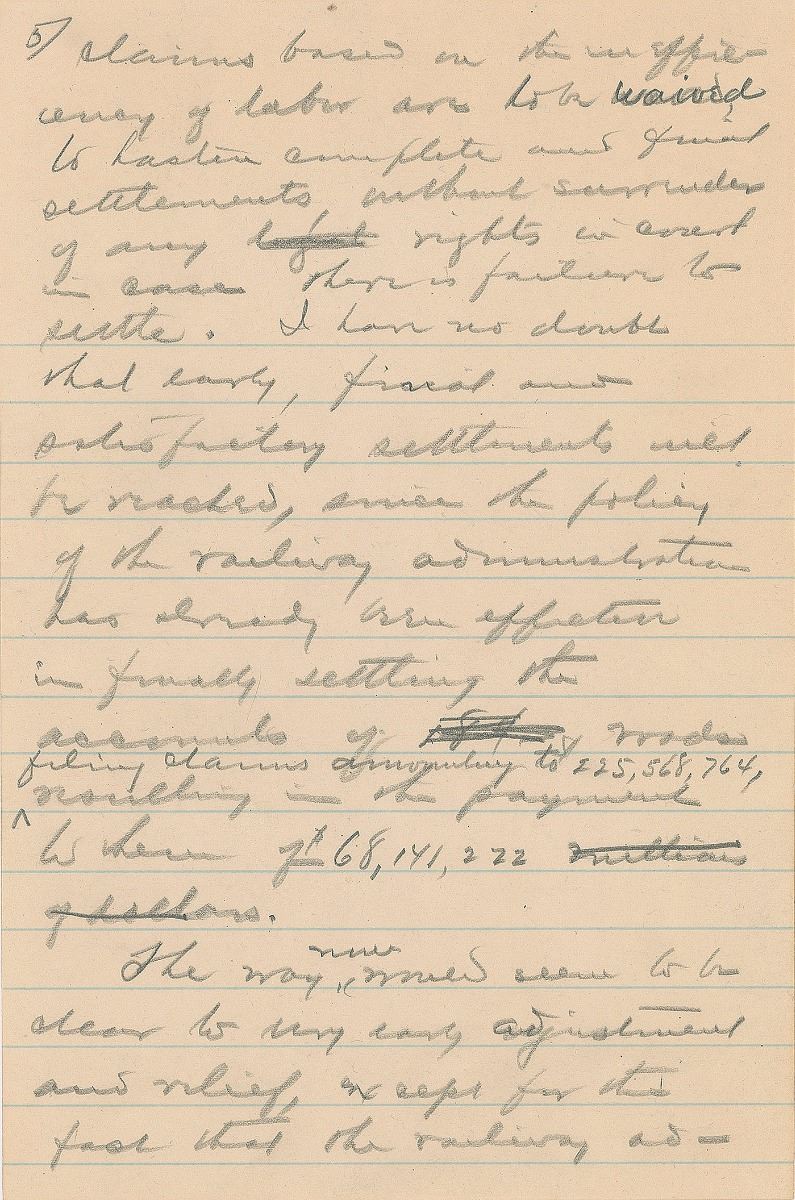 5/ claims based on the ineffici-
ency of labor are to be waived
to hasten complete and final
settlements, without surrender
of any legal rights in court
in case there is failure to
settle. I have no doubt
that early, final and
satisfactory settlements will
be reached, since the policy
of the railway administration
has already been effective
in finally settling the
accounts of roads
filing claims amounting to 225,568,764,
resulting in the payment
to them of $68,141,222 millions
of dollars.
now
The way, would seem to be
clear to very early adjustment
and relief, except for the
fact that the railway ad-